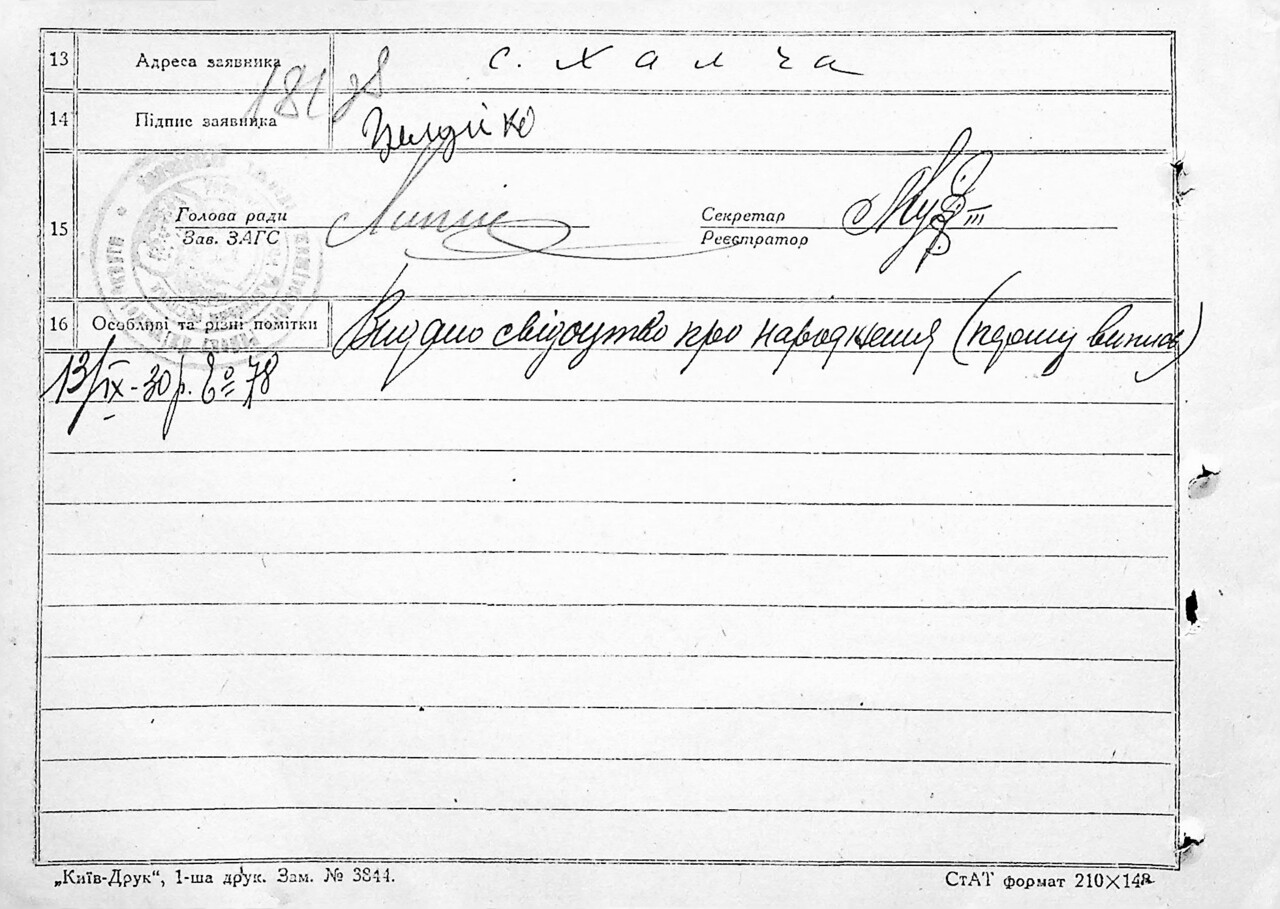 13 Адреса заявника с. Халча
14 Підпис заявника
15 Голова ради Секретар
Зав. ЗАГС Реєстратор
16 Особливі та різні помітки Видано свідоцтво про народження (першу виписку)
13/IX-30 р. № 78
„Київ-Друк“, 1-ша друк. Зам. № 3844.
СтАТ формат 210×148